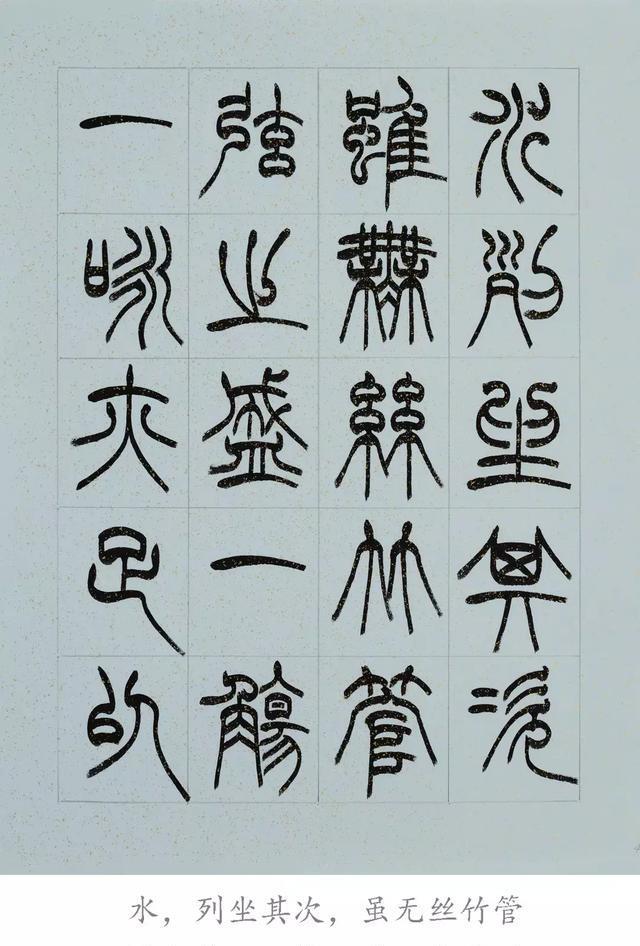 水列坐其次
雖無絲竹管
弦之盛一觴
一詠亦足以
水，列坐其次，虽无丝竹管